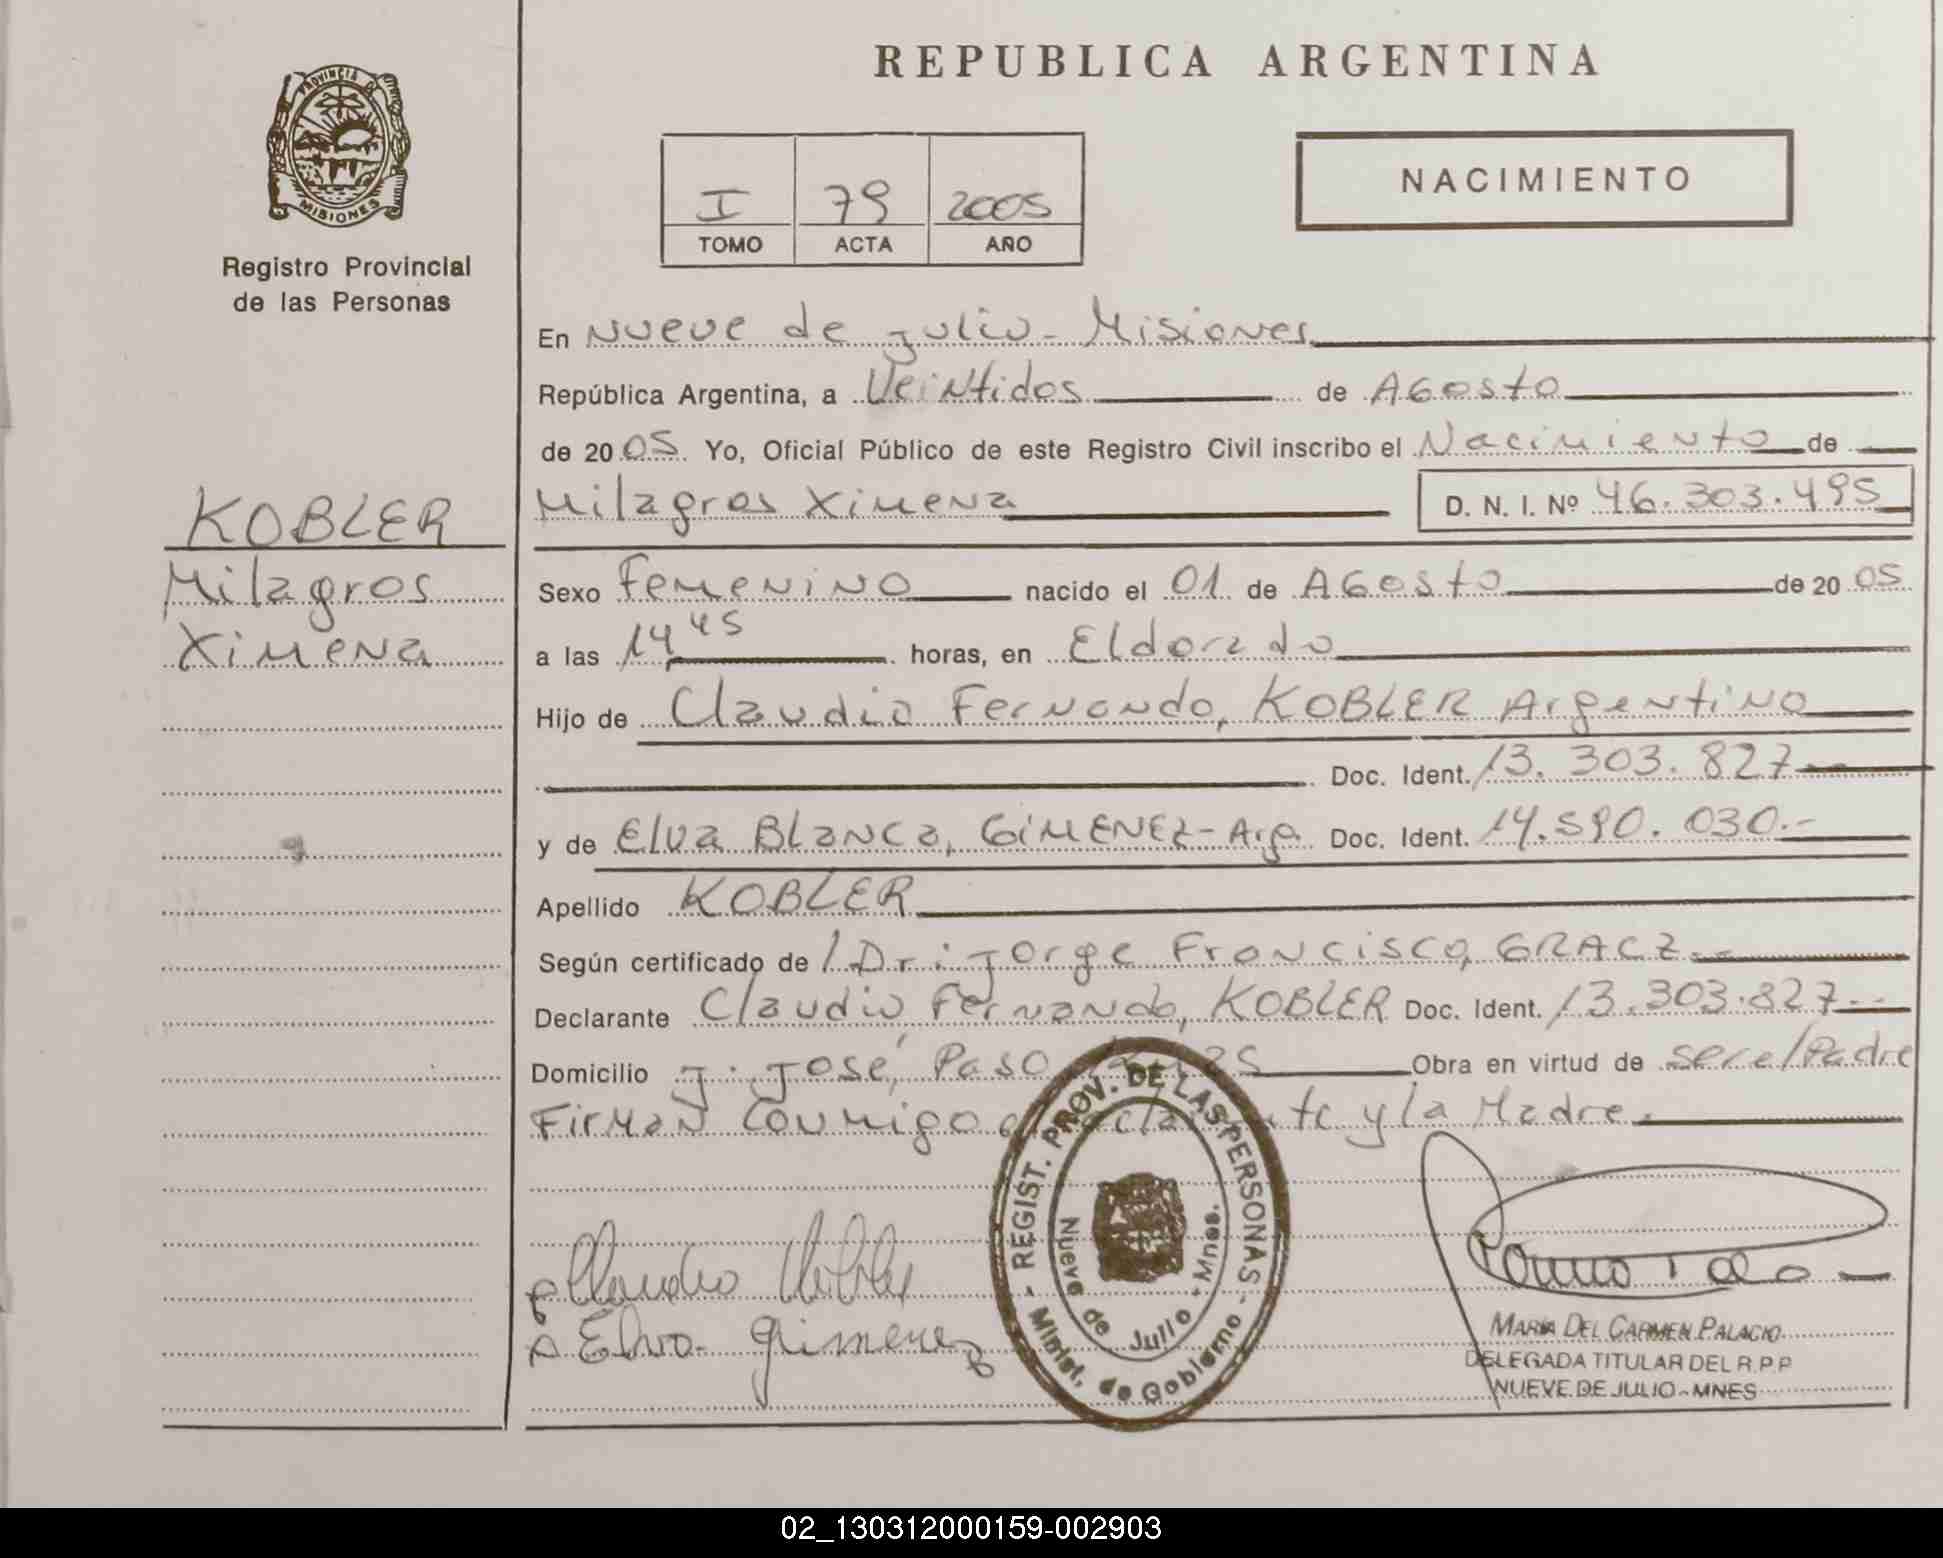 REPUBLICA ARGENTINA
PROVINCIA DE
MISIONES
Registro Provincial
de las Personas
I 79 2005
TOMO ACTA AÑO
NACIMIENTO
En Nueve de Julio - Misiones
República Argentina, a Veintidos de Agosto
de 2005. Yo, Oficial Público de este Registro Civil inscribo el Nacimiento de
KOBLER
Milagros Ximena
D. N. I. Nº 46.303.495
Milagros
Ximena
Sexo Femenino nacido el 01 de Agosto de 2005
a las 14,45 horas, en Eldorado
Hijo de Claudio Fernando, KOBLER Argentino
Doc. Ident. 13.303.827--
y de Elva Blanca, GiMENEZ - Arg. Doc. Ident. 14.590.030.-
Apellido KOBLER
Según certificado de / Dr: Jorge Francisco, GRACZ.--
Declarante Claudio Fernando, KOBLER Doc. Ident. 13.303.827--
Domicilio J. José, Paso Obra en virtud de ser el Padre
Firman conmigo y la Madre.
Claudio Kobler
Elva Gimenez
REGIST. PROV. DE LAS PERSONAS
Minist. de Gobierno
Nueve de Julio - Mnes.
MARIA DEL CARMEN PALACIO
DELEGADA TITULAR DEL R.P.P
NUEVE DE JULIO - MNES
02_130312000159-002903